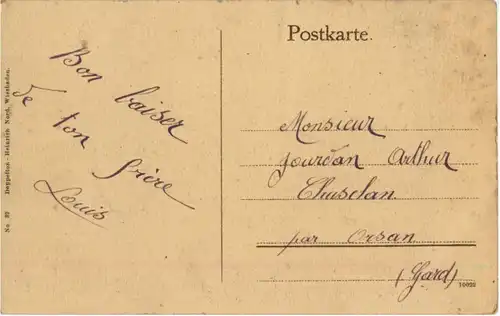 Postkarte.
Bon baiser
de ton frère
Louis
Monsieur
Jourdan Arthur
Chusclan
par Orsan
(Gard)
10025
No. 27 Doppelton - Heinrich Nord, Wiesbaden.